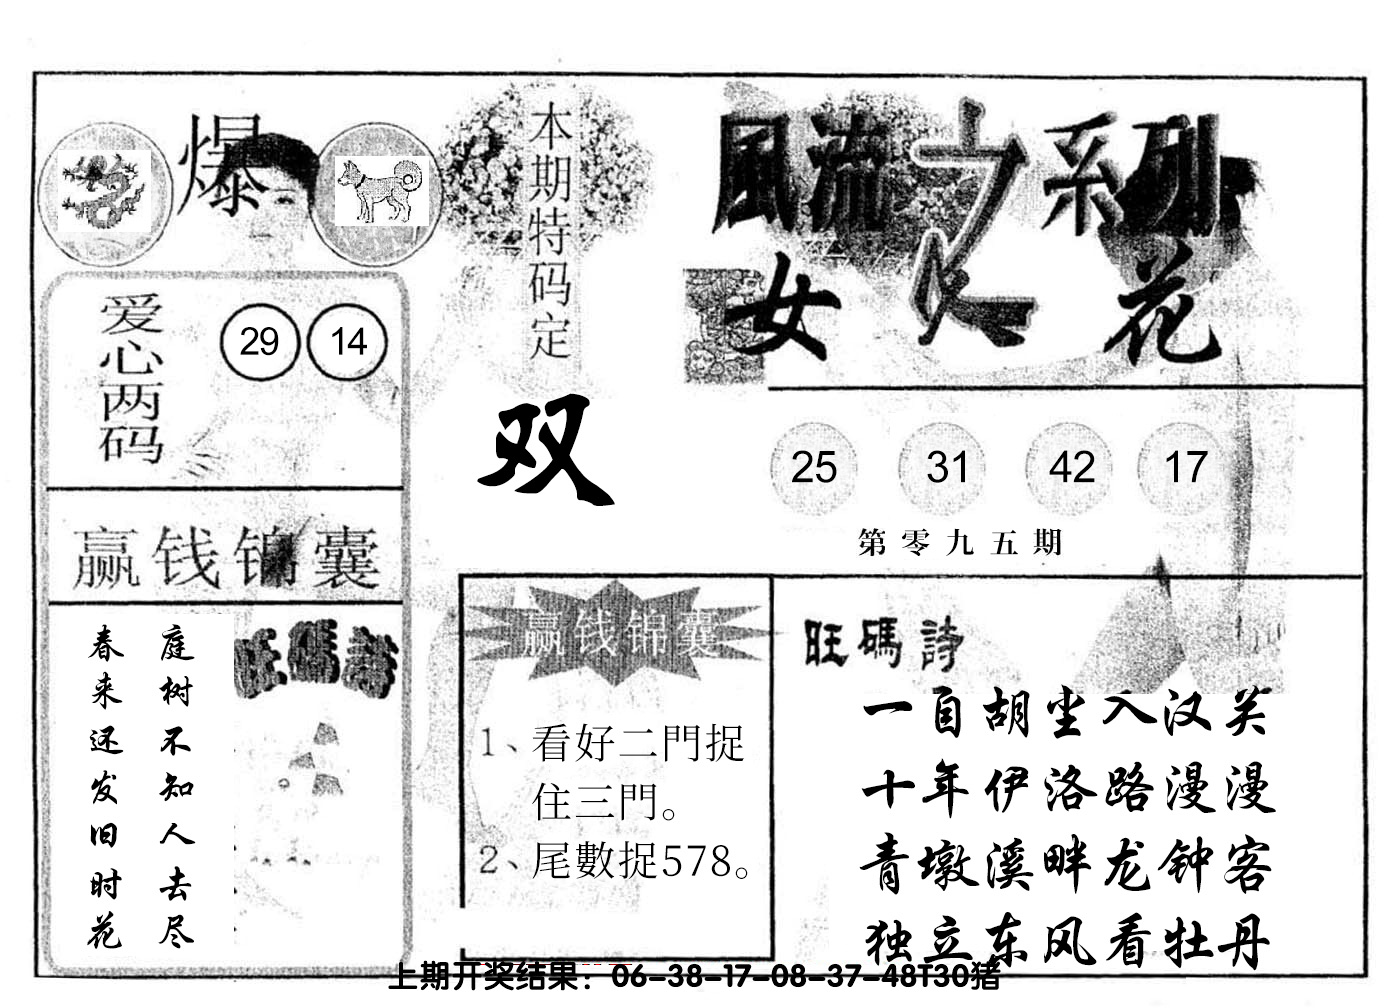 爆
本期特码定
双
風流之系列
女人花
爱心两码
29 14
25 31 42 17
第零九五期
赢钱锦囊
庭树不知人去尽
春来还发旧时花
旺碼詩
赢钱锦囊
1、看好二門捉
住三門。
2、尾數捉578。
旺碼詩
一自胡尘入汉关
十年伊洛路漫漫
青墩溪畔龙钟客
独立东风看牡丹
上期开奖结果：06-38-17-08-37-48T30猪